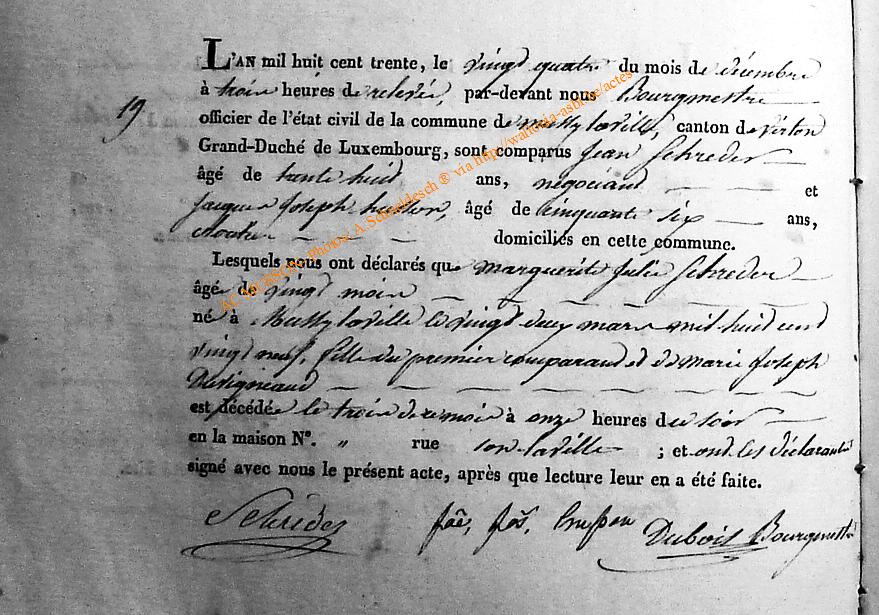 L'AN mil huit cent trente, le vingt quatre du mois de décembre
à trois heures de relevée, par-devant nous Bourgmestre
19
officier de l'état civil de la commune de mussy laville, canton de virton
Grand-Duché de Luxembourg, sont comparus Jean Schreder
âgé de trente huit ans, négociant et
Jacques Joseph husson, âgé de cinquante six ans,
domiciliés en cette commune.
Lesquels nous ont déclarés que marguerite Julie Schreder
âgé de vingt mois
né à Mussy laville le vingt deux mars mil huit cent
vingt neuf, fille du premier comparant et de marie Joseph
Duvigneaud
est décédée le trois de ce mois à onze heures du soir
en la maison N°. " rue laville ; et ont les déclarants
signé avec nous le présent acte, après que lecture leur en a été faite.
Schrèder Jos, husson Dubois Bourgmestre
AC MUSSON Photos: A.Schneidesch ® via http://wallonia-asbl.be/actes